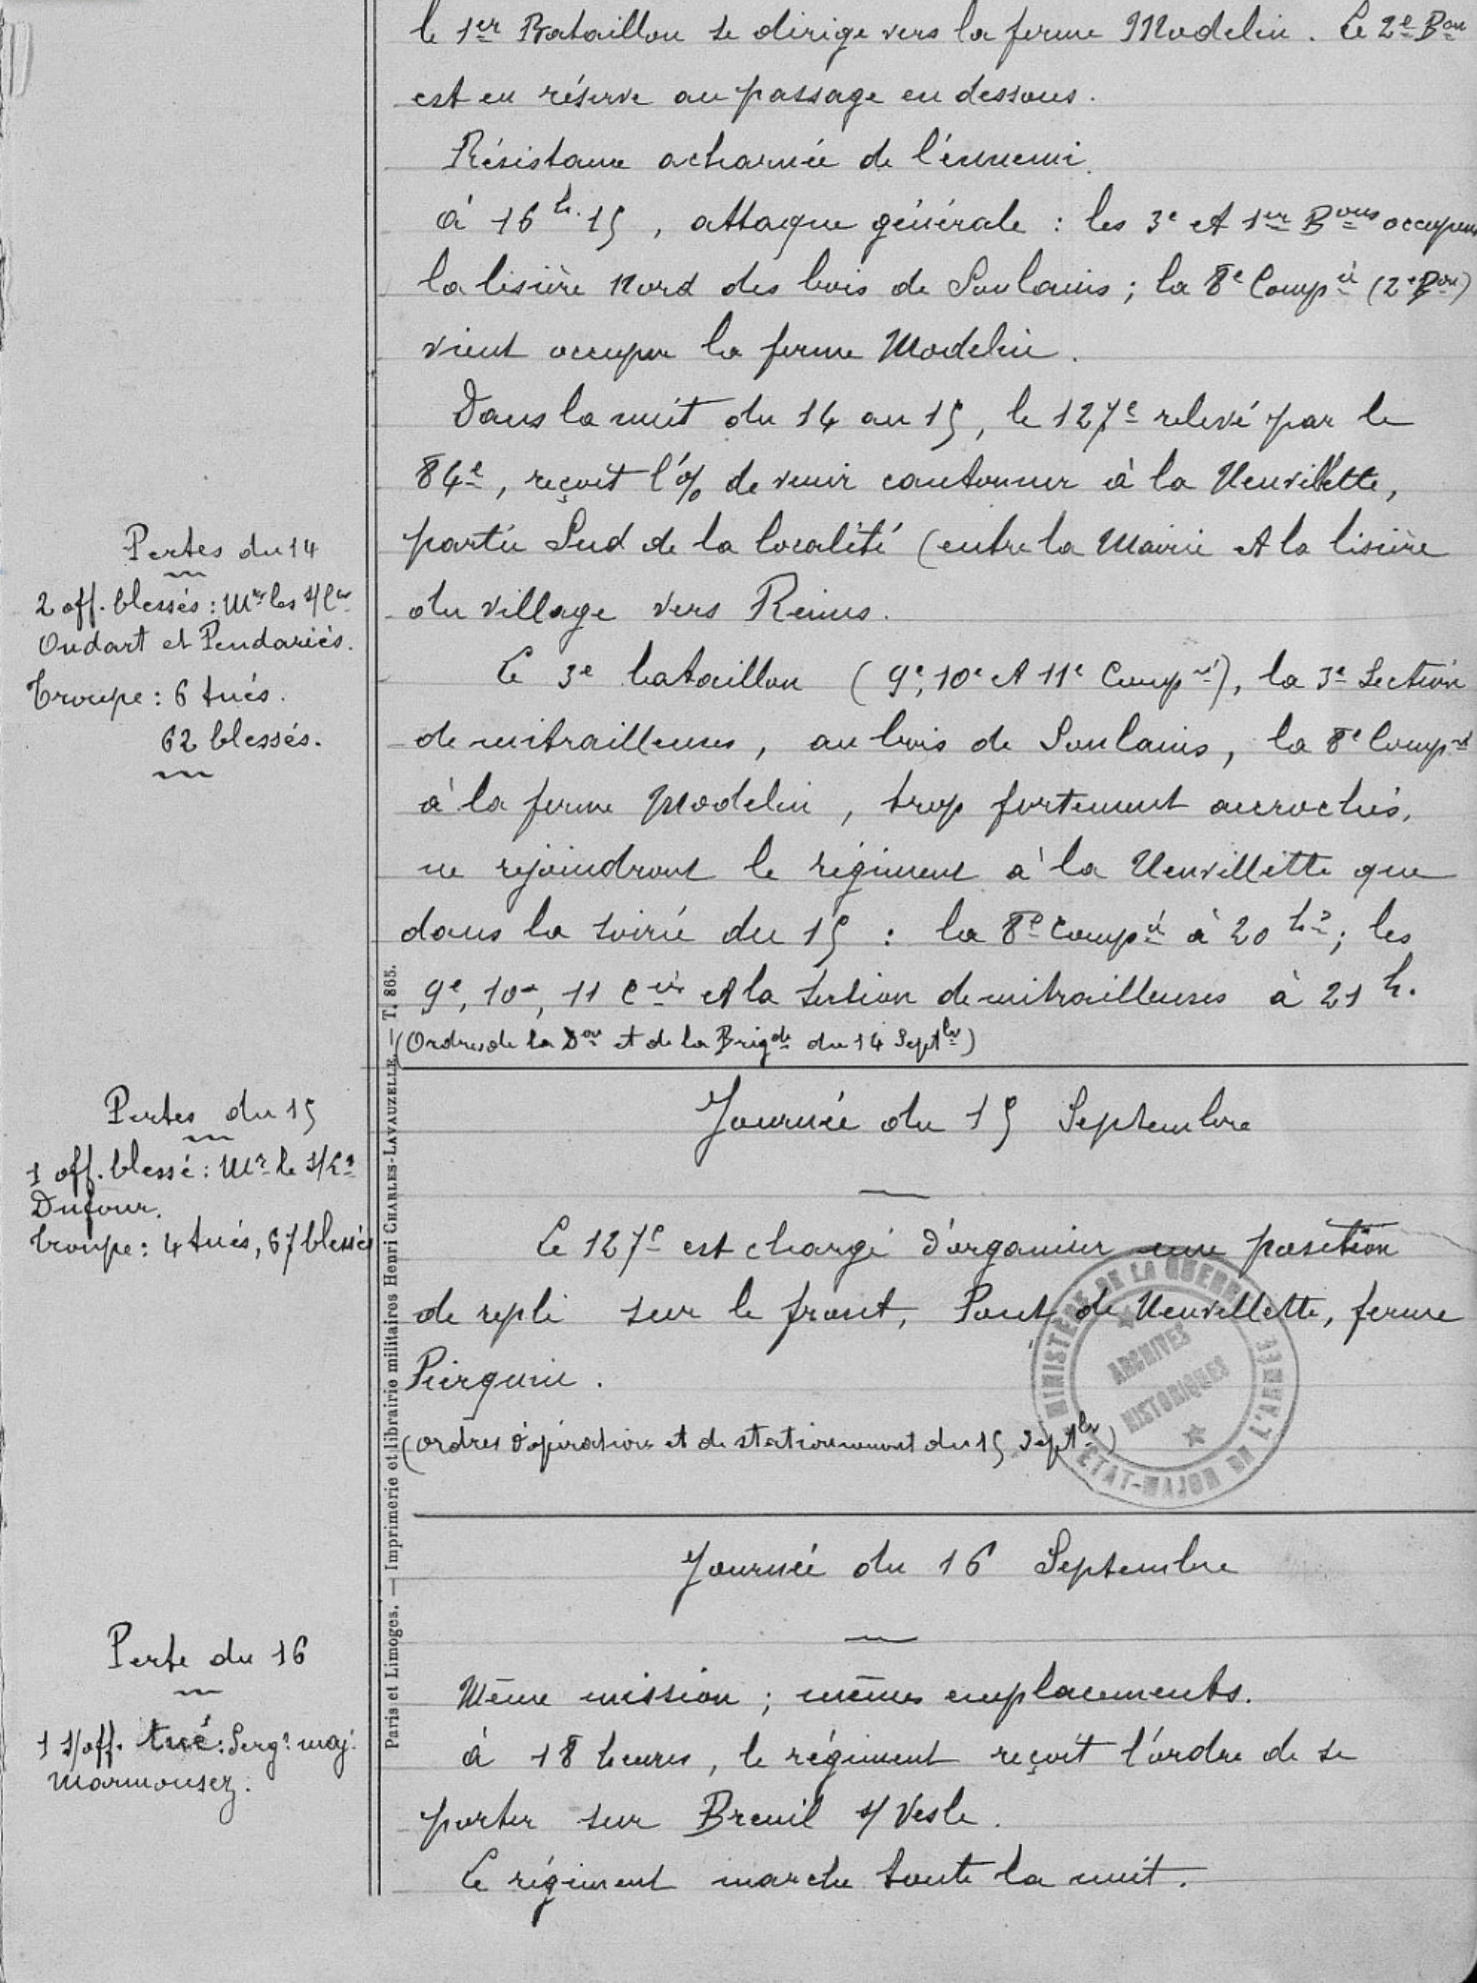 le 1er Bataillon se dirige vers la ferme Modelin. Le 2e Bon
est en réserve au passage en dessous.
Résistance acharnée de l'ennemi.
à 16h.15, attaque générale : les 3e et 1er Bons occupent
la lisière Nord des bois de Soulains ; la 8e Compie (2e Bon)
vient occuper la ferme Modelin.
Dans la nuit du 14 au 15, le 127e relevé par le
84e, reçoit l'o/o de venir cantonner à la Neuvillette,
partie Sud de la localité (entre la Mairie et la lisière
du village vers Reims.
Le 3e bataillon (9e, 10e et 11e Compies), la 3e Section
de mitrailleuses, au bois de Soulains, la 8e Compie
à la ferme Modelin, trop fortement accrochés,
ne rejoindront le régiment à la Neuvillette que
dans la soirée du 15 : la 8e Compie à 20 hes ; les
9e, 10e, 11 Cies et la Section de mitrailleuses à 21 h.
(Ordres de la Don et de la Brigde du 14 Septbre)
Pertes du 14
2 off. blessés : Mrs les s/Ltes
Oudart et Pendariès.
Troupe : 6 tués.
62 blessés.
Journée du 15 Septembre
Le 127e est chargé d'organiser une position
de repli sur le front, Pont de Neuvillette, ferme
Pierquin.
(ordres d'opérations et de stationnement du 15 Septbre)
Pertes du 15
1 off. blessé : Mr le s/Lt
Dufour.
Troupe : 4 tués, 67 blessés
MINISTÈRE DE LA GUERRE
ARCHIVES
HISTORIQUES
ÉTAT-MAJOR DE L'ARMÉE
Journée du 16 Septembre
Même mission ; mêmes emplacements.
à 18 heures, le régiment reçoit l'ordre de se
porter sur Breuil s/ Vesle.
Le régiment marche toute la nuit.
Perte du 16
1 s/off. tué : Sergt maj.
Marmousez.
Paris et Limoges. — Imprimerie et librairie militaires Henri CHARLES-LAVAUZELLE. — T. 865.